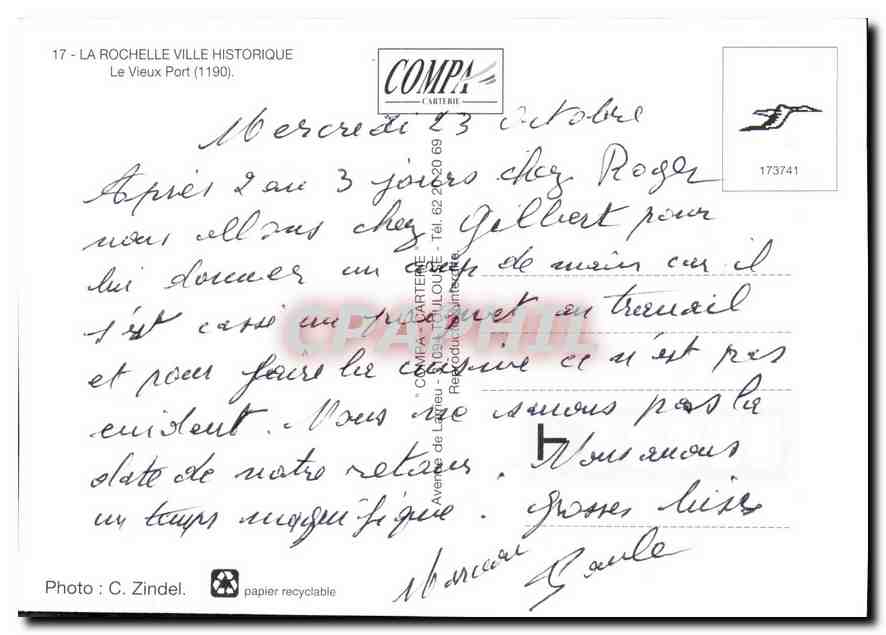 17 - LA ROCHELLE VILLE HISTORIQUE
Le Vieux Port (1190).
COMPA
CARTERIE
173741
Mercredi 23 Octobre
Après 2 ou 3 jours chez Roger
nous allons chez Gilbert pour
lui donner un coup de main car il
s'est cassé un poignet au travail
et pour faire la cuisine ce n'est pas
évident. Nous ne savons pas la
date de notre retour. Nous avons
un temps magnifique. Grosses bises
Paule
" COMPA - CARTERIE "
Avenue de Larrieu - 31094 TOULOUSE - Tél. 62 20 20 69
Reproduction interdite.
CPAPHIL
Photo : C. Zindel.
papier recyclable